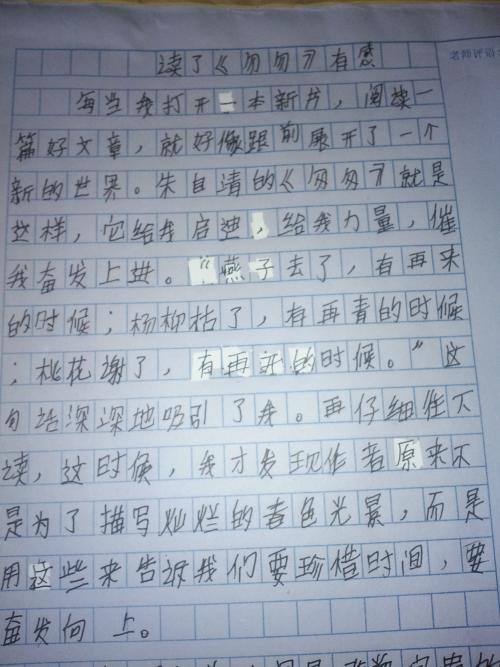 读了《匆匆》有感
老师评语:
每当我打开一本新书，阅读一
篇好文章，就好像眼前展开了一个
新的世界。朱自清的《匆匆》就是
这样，它给我启迪，给我力量，催
我奋发上进。“燕子去了，有再来
的时候；杨柳枯了，有再青的时候
；桃花谢了，有再开的时候。”这
句话深深地吸引了我。再仔细往下
读，这时候，我才发现作者原来不
是为了描写灿烂的春色光景，而是
用这些来告诉我们要珍惜时间，要
奋发向上。